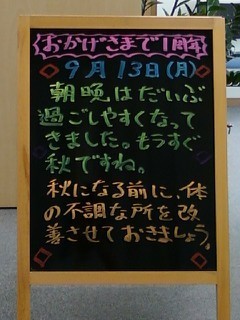 おかげさまで1周年
9月13日(月)
朝晩はだいぶ
過ごしやすくなって
きました。もうすぐ
秋ですね。
秋になる前に、体
の不調な所を改
善させておきましょう。